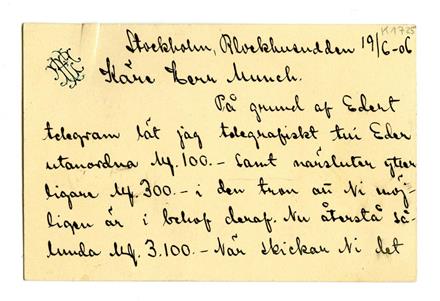 K 1735
Stockholm, Blockhusudden 19/6-06
Käre Herr Munch.
På grund af Edert
telegram lät jag telegrafiskt till Eder
utanordna M. 100.- samt närsluter ytter
ligare M. 300.- i den tron att Ni möj
ligen är i behof deraf. Nu återstå så
lunda M. 3.100.- När skickar Ni det